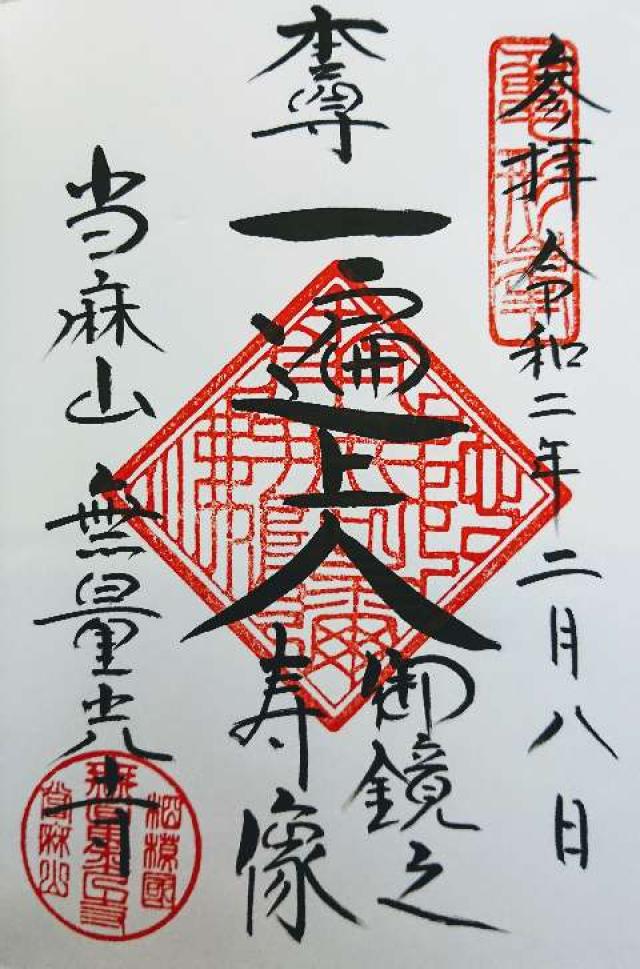 参拝 令和二年二月八日
本尊
一遍上人
御鏡之
寿像
当麻山 無量光寺
相模國
無量光寺
當麻山